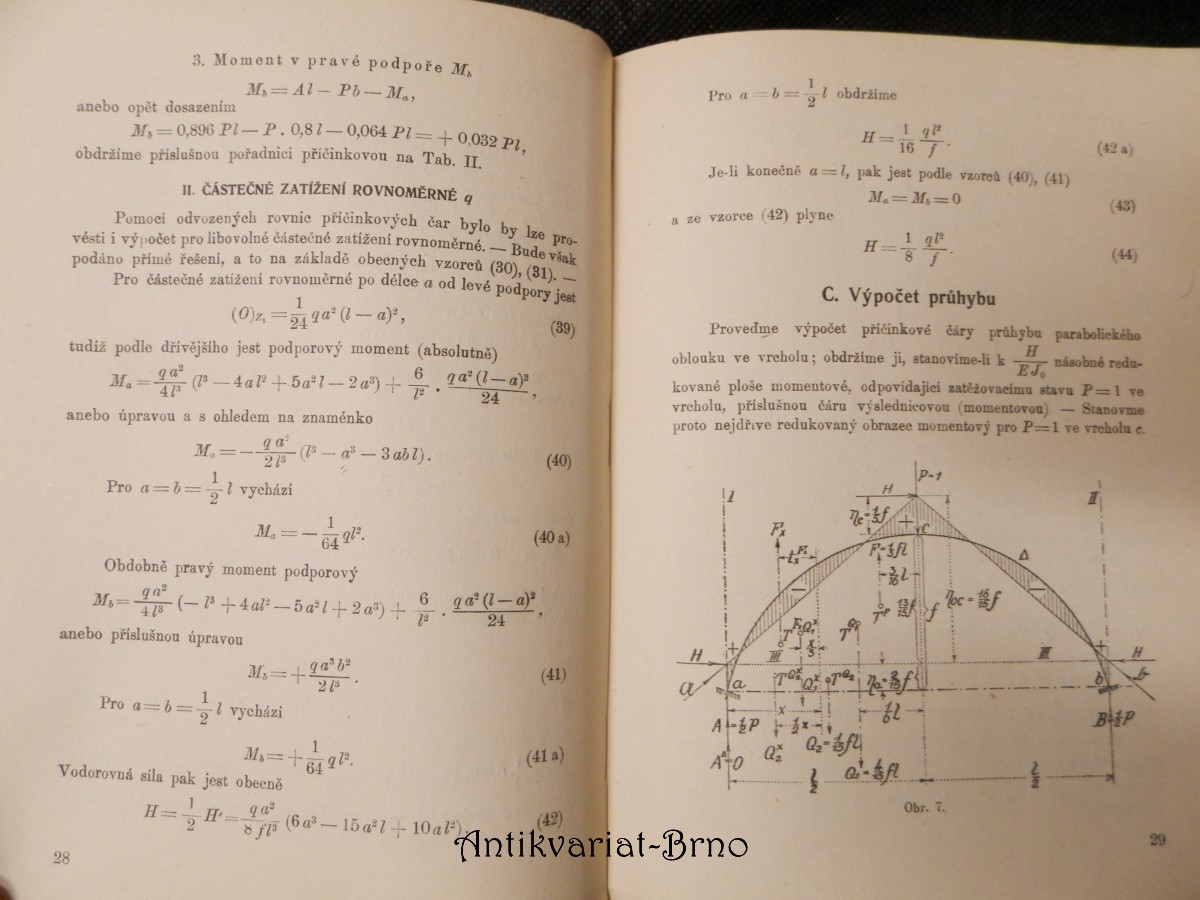 3. Moment v pravé podpoře M_b
M_b = A l − P b − M_a,
anebo opět dosazením
M_b = 0,896 Pl − P . 0,8 l − 0,064 Pl = + 0,032 Pl,
obdržíme příslušnou pořadnici příčinkovou na Tab. II.
II. ČÁSTEČNÉ ZATÍŽENÍ ROVNOMĚRNÉ q
Pomocí odvozených rovnic příčinkových čar bylo by lze pro-
vésti i výpočet pro libovolné částečné zatížení rovnoměrné. — Bude však
podáno přímé řešení, a to na základě obecných vzorců (30), (31). —
Pro částečné zatížení rovnoměrné po délce a od levé podpory jest
(O)z₁ = 1/24 q a² (l − a)², (39)
tudíž podle dřívějšího jest podporový moment (absolutně)
M_a = q a²/4 l³ (l³ − 4 a l² + 5 a² l − 2 a³) + 6/l² . q a² (l − a)²/24,
anebo úpravou a s ohledem na znaménko
M_a = − q a²/2 l³ (l³ − a³ − 3 a b l). (40)
Pro a = b = 1/2 l vychází
M_a = − 1/64 q l². (40 a)
Obdobně pravý moment podporový
M_b = q a²/4 l³ (− l³ + 4 a l² − 5 a² l + 2 a³) + 6/l² . q a² (l − a)²/24,
anebo příslušnou úpravou
M_b = + q a³ b²/2 l³. (41)
Pro a = b = 1/2 l vychází
M_b = + 1/64 q l². (41 a)
Vodorovná síla pak jest obecně
H = 1/2 H' = q a²/8 f l³ (6 a³ − 15 a² l + 10 a l²) (42)
28
Pro a = b = 1/2 l obdržíme
H = 1/16 q l²/f. (42 a)
Je-li konečně a = l, pak jest podle vzorců (40), (41)
M_a = M_b = 0 (43)
a ze vzorce (42) plyne
H = 1/8 q l²/f. (44)
C. Výpočet průhybu
Proveďme výpočet příčinkové čáry průhybu parabolického
oblouku ve vrcholu; obdržíme ji, stanovíme-li k H/E J₀ násobné redu-
kované ploše momentové, odpovídající zatěžovacímu stavu P = 1 ve
vrcholu, příslušnou čáru výslednicovou (momentovou) — Stanovme
proto nejdříve redukovaný obrazec momentový pro P = 1 ve vrcholu c.
P=1
I
H
II
η_c = 1/5 f
+
c
F_x
t_x^Fx
F = 1/3 fl
Δ
3/16 l
−
−
η_0c = 16/15 f
T^P
13/15 f
f
Q₁^x
x/3
III
III
+
+
H
H
a
a
T^Q₂^x
Q₁^x
T^Q₂
η_a = 2/15 f
b
b
x
1/6 l
A = 1/2 P
1/2 x
B = 1/2 P
Q₂^x
Q₂ = 1/15 fl
A^Δ = 0
l/2
l/2
Obr. 7.
29
Antikvariat-Brno